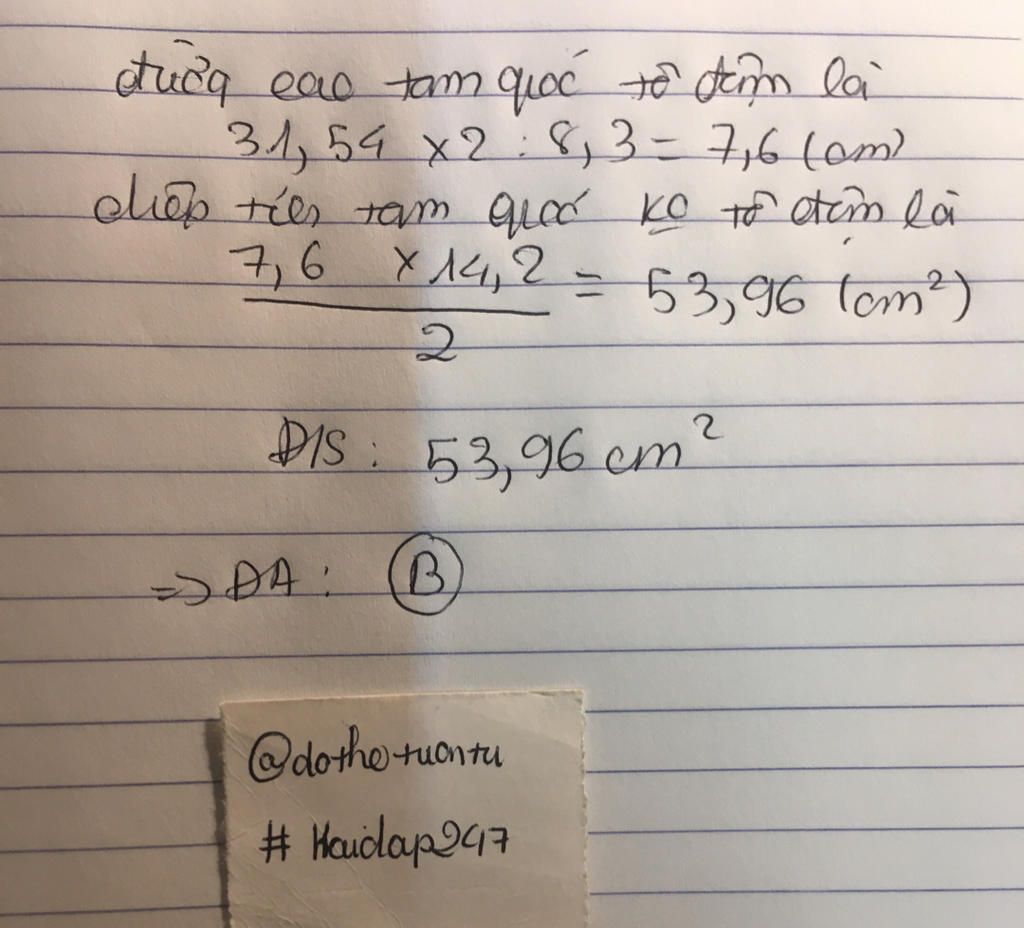 đường cao tam giác tô đậm là
31,54 x 2 : 8,3 = 7,6 (cm)
diện tích tam giác ko tô đậm là
7,6 x 14,2 = 53,96 (cm²)
2
Đ/S : 53,96 cm²
=> ĐA : B
@dothetuantu
# Hoidap247